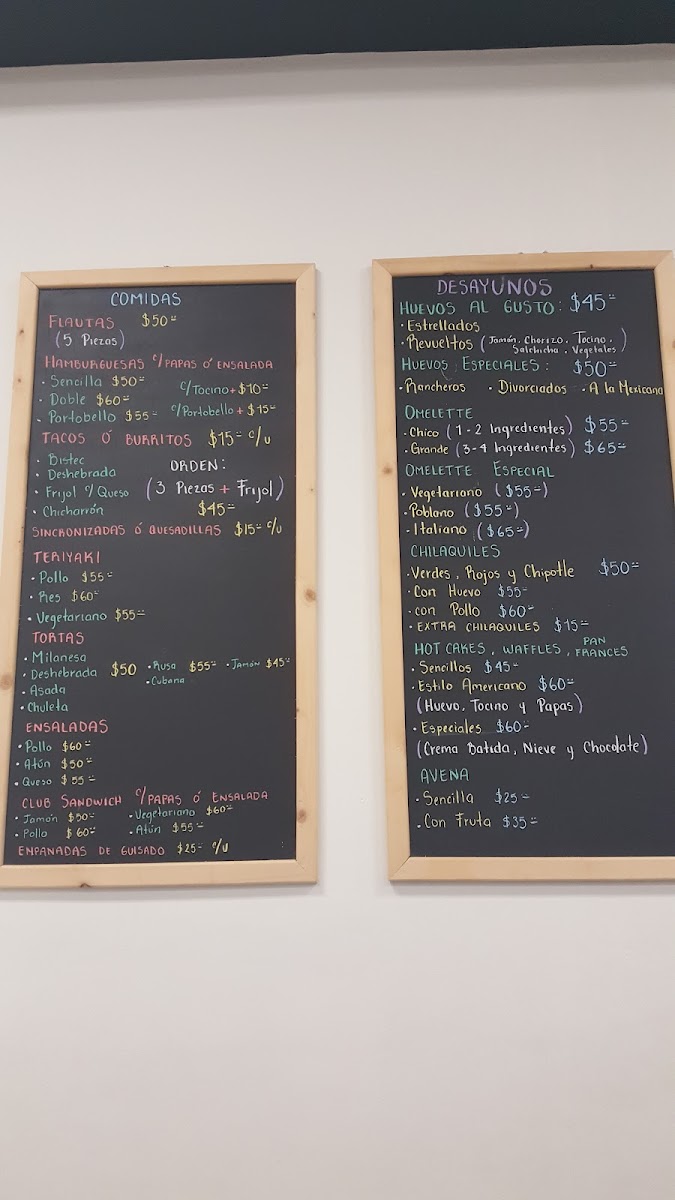 COMIDAS
FLAUTAS $50=
(5 Piezas)
HAMBURGUESAS c/PAPAS Ó ENSALADA
· Sencilla $50= c/Tocino + $10=
· Doble $60=
· Portobello $55= c/Portobello + $15=
TACOS Ó BURRITOS $15= c/u
· Bistec
· Deshebrada
· Frijol c/Queso
· Chicharrón
ORDEN:
(3 Piezas + Frijol)
$45=
SINCRONIZADAS Ó QUESADILLAS $15= c/u
TERIYAKI
· Pollo $55=
· Res $60=
· Vegetariano $55=
TORTAS
· Milanesa
· Deshebrada $50 · Rusa $55= · Jamón $45=
· Asada · Cubana
· Chuleta
ENSALADAS
· Pollo $60=
· Atún $50=
· Queso $55=
CLUB SANDWICH c/PAPAS Ó ENSALADA
· Jamón $50= · Vegetariano $60=
· Pollo $60= · Atún $55=
EMPANADAS DE GUISADO $25= c/u
DESAYUNOS
HUEVOS AL GUSTO: $45=
· Estrellados
· Revueltos (Jamón. Chorizo. Tocino. Salchicha. Vegetales.)
HUEVOS ESPECIALES: $50=
· Rancheros · Divorciados · A la Mexicana
OMELETTE
· Chico (1-2 Ingredientes) $55=
· Grande (3-4 Ingredientes) $65=
OMELETTE ESPECIAL
· Vegetariano ($55=)
· Poblano ($55=)
· Italiano ($65=)
CHILAQUILES
· Verdes, Rojos y Chipotle $50=
· Con Huevo $55=
· con Pollo $60=
· EXTRA CHILAQUILES $15=
HOT CAKES, WAFFLES, PAN FRANCES
· Sencillos $45=
· Estilo Americano $60=
(Huevo, Tocino y Papas)
· Especiales $60=
(Crema Batida, Nieve y Chocolate)
AVENA
· Sencilla $25=
· Con Fruta $35=